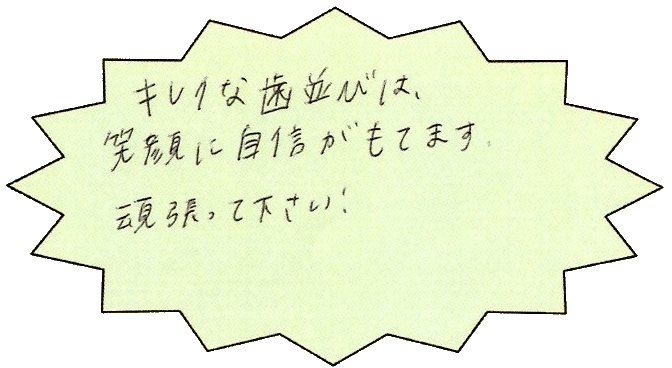 キレイな歯並びは、
笑顔に自信がもてます.
頑張って下さい!